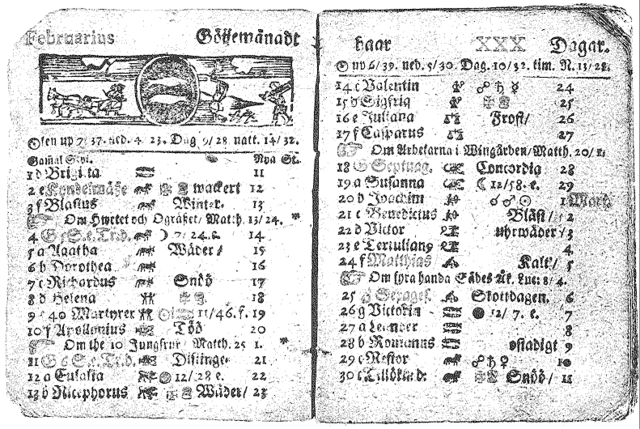 Februarius Göijemånadt
Solen up 7/37. ned. 4 23. Dag 9/28 natt. 14/32.
Gamal Styl. Nya St.
1 d Brigita 11
2 e Kyndelmässe wackert 12
3 f Blasius Winter. 13
Om Hwetet och Ogräset/ Matth. 13/24. *
4 G 5.e.Tr.d. 7/24.e. 14
5 a Agatha Wäder/ 15
6 b Dorothea 16
7 c Richardus Snöö 17
8 d Helena 18
9 40 Martyrer 11/46.f. 19
10 f Apollonius Töö 20
Om the 10 Jungfrur/ Matth. 25 1. *
11 G 6 S.e.Tr.d. 21
12 a Eulalia 12/28 e. 22
13 b Nicephorus Wäder/ 23
haar XXX Dagar.
up 6/39. ned. 5/30. Dag. 10/32. tim. N. 13/28.
14 c Valentin ☍ ♄ ☿ 24
15 d Sigfrid 25
16 e Juliana Frost/ 26
17 f Casparus 27
Om Arbetarna i Wingården/ Matth. 20/1.
18 G Septuag. Concordia 28
19 a Susanna ☾ 12/58.e. 29
20 b Joachim ☌ ♂ ☉ 1 Mart.
21 c Benedictus Blåst/ 2
22 d Victor uhrwäder/ 3
23 e Tertuliany 4
24 f Matthias Kalt/ 5
Om fyra handa Sädes Åk. Luc: 8/4.
25 G Sexages. Skottdagen. 6
26 g Victorin 12/7. e. 7
27 a Leander 8
28 b Romanus ostadigt 9
29 c Nestor ☍ ♄ ♀ 10
30 c Tillökn d. Snöö/ 11